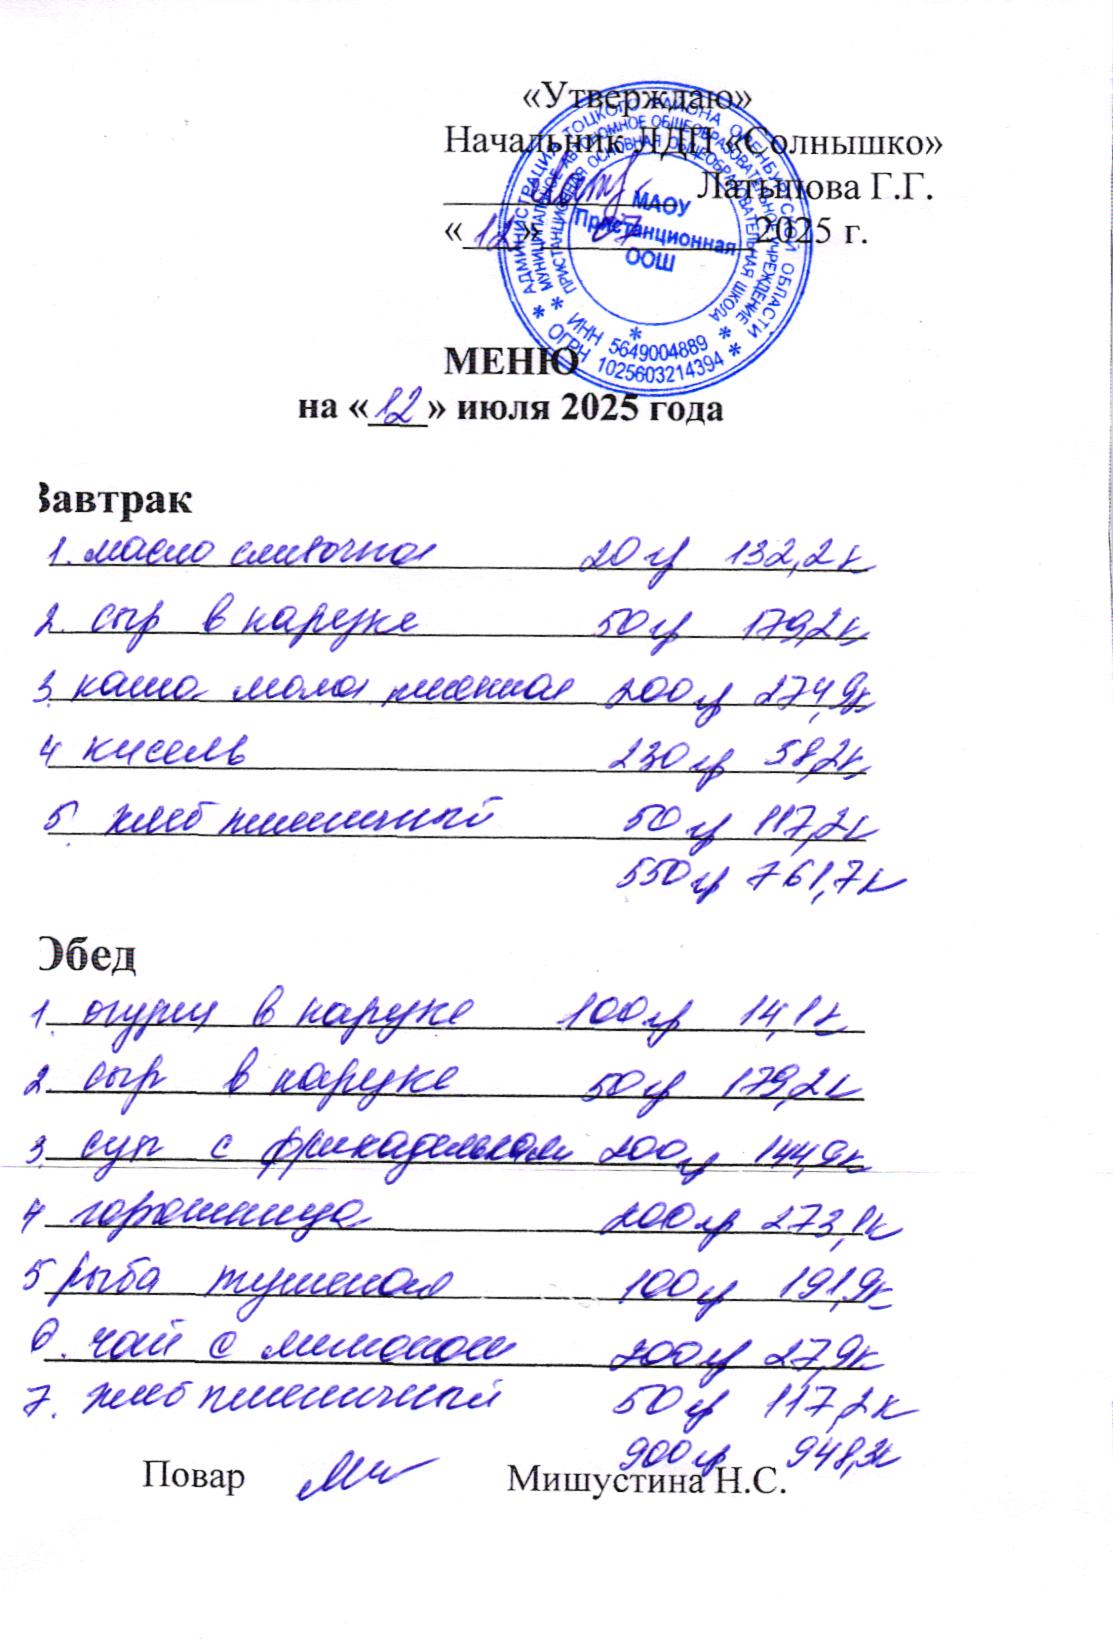 «Утверждаю»
Начальник ЛДП «Солнышко»
Латыпова Г.Г.
«12» 07 2025 г.
АДМИНИСТРАЦИЯ ТОЦКОГО РАЙОНА ОРЕНБУРГСКОЙ ОБЛАСТИ
МУНИЦИПАЛЬНОЕ АВТОНОМНОЕ ОБЩЕОБРАЗОВАТЕЛЬНОЕ УЧРЕЖДЕНИЕ
ПРИСТАНЦИОННАЯ ОСНОВНАЯ ОБЩЕОБРАЗОВАТЕЛЬНАЯ ШКОЛА
МАОУ
Пристанционная
ООШ
* ИНН 5649004889 *
* ОГРН 1025603214394 *
МЕНЮ
на «12» июля 2025 года
Завтрак
1. масло сливочное 20 гр 132,2 к
2. сыр в нарезке 50 гр 179,2 к
3. каша молоч пшенная 200 гр 274,9 к
4 кисель 230 гр 58,2 к
5 хлеб пшеничный 50 гр 117,2 к
550 гр 761,7 к
Обед
1. огурец в нарезке 100 гр 14,1 к
2. сыр в нарезке 50 гр 179,2 к
3. суп с фрикадельками 200 гр 144,9 к
4 горошница 200 гр 273,1 к
5 рыба тушеная 100 гр 191,9 к
6. чай с лимоном 200 гр 27,9 к
7. хлеб пшеничный 50 гр 117,2 к
900 гр 948,3 к
Повар Мишустина Н.С.